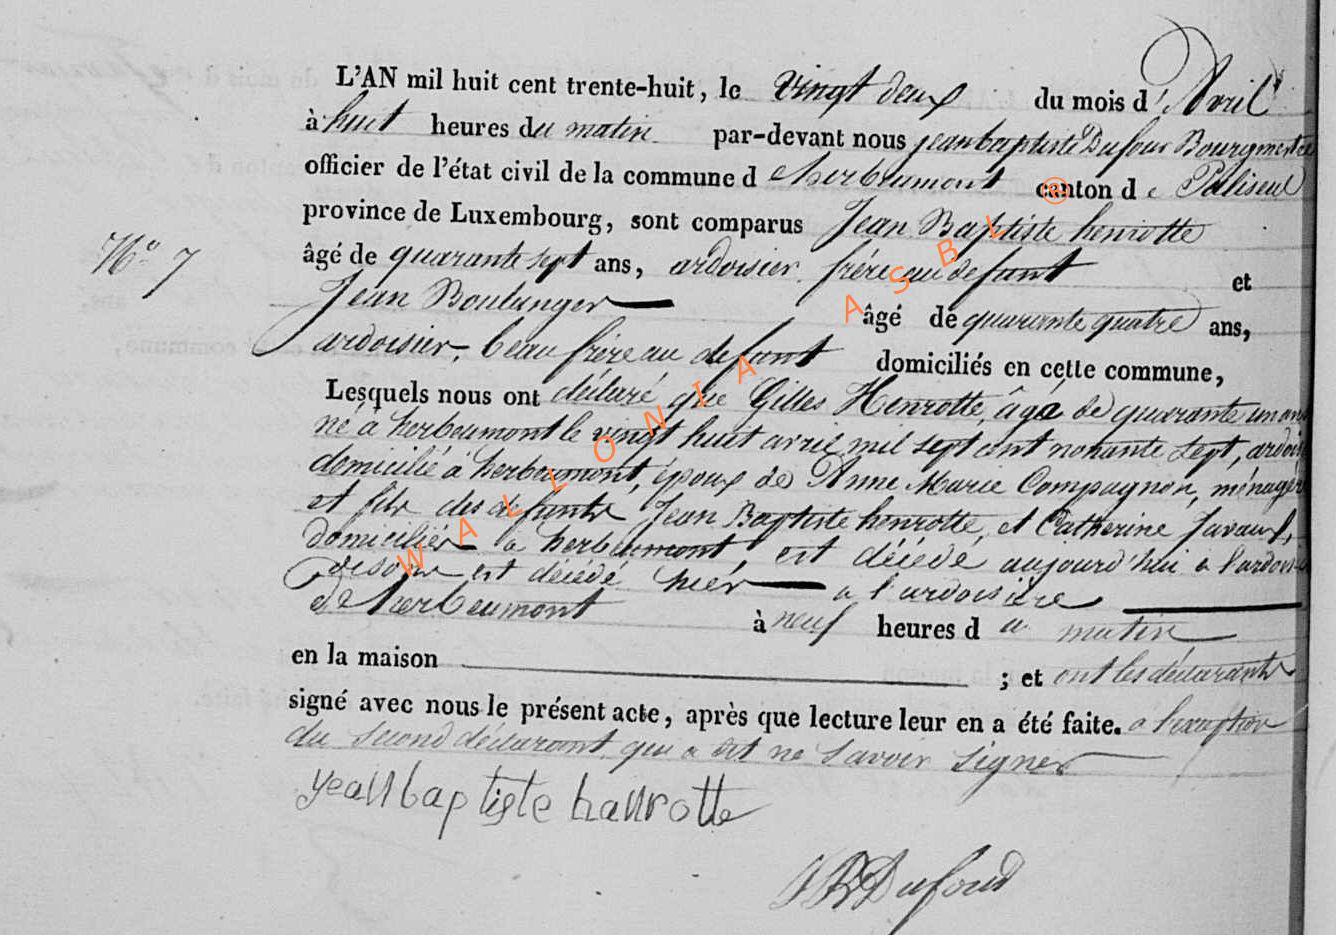 L'AN mil huit cent trente-huit, le vingt deux du mois d'Avril
à huit heures du matin par-devant nous jean baptiste Dufour Bourgmestre
officier de l'état civil de la commune d'herbeumont canton de Paliseul
province de Luxembourg, sont comparus Jean Baptiste henrotte
N° 7
âgé de quarante sept ans, ardoisier frère au defunt et
Jean Boulanger âgé de quarante quatre ans,
ardoisier, beau frère au defunt domiciliés en cette commune,
Lesquels nous ont déclaré que Gilles Henrotte, âgé de quarante un ans
né à herbeumont le vingt huit avril mil sept cent nonante sept, ardoi
domicilié à herbeumont, époux de Anne Marie Compagnon, ménagère
et fils des defunts Jean Baptiste henrotte, et Catherine Javaux,
domiciliés à herbeumont, est décédé aujourd'hui à l'ardoi
est décédé hiér à l'ardoisière
de herbeumont à neuf heures du matin
en la maison ; et ont les déclarants
signé avec nous le présent acte, après que lecture leur en a été faite. a l'exception
du second déclarant, qui a dit ne savoir signer
jean baptiste hanrotte
JB Dufour
WALLONIA ASBL ®